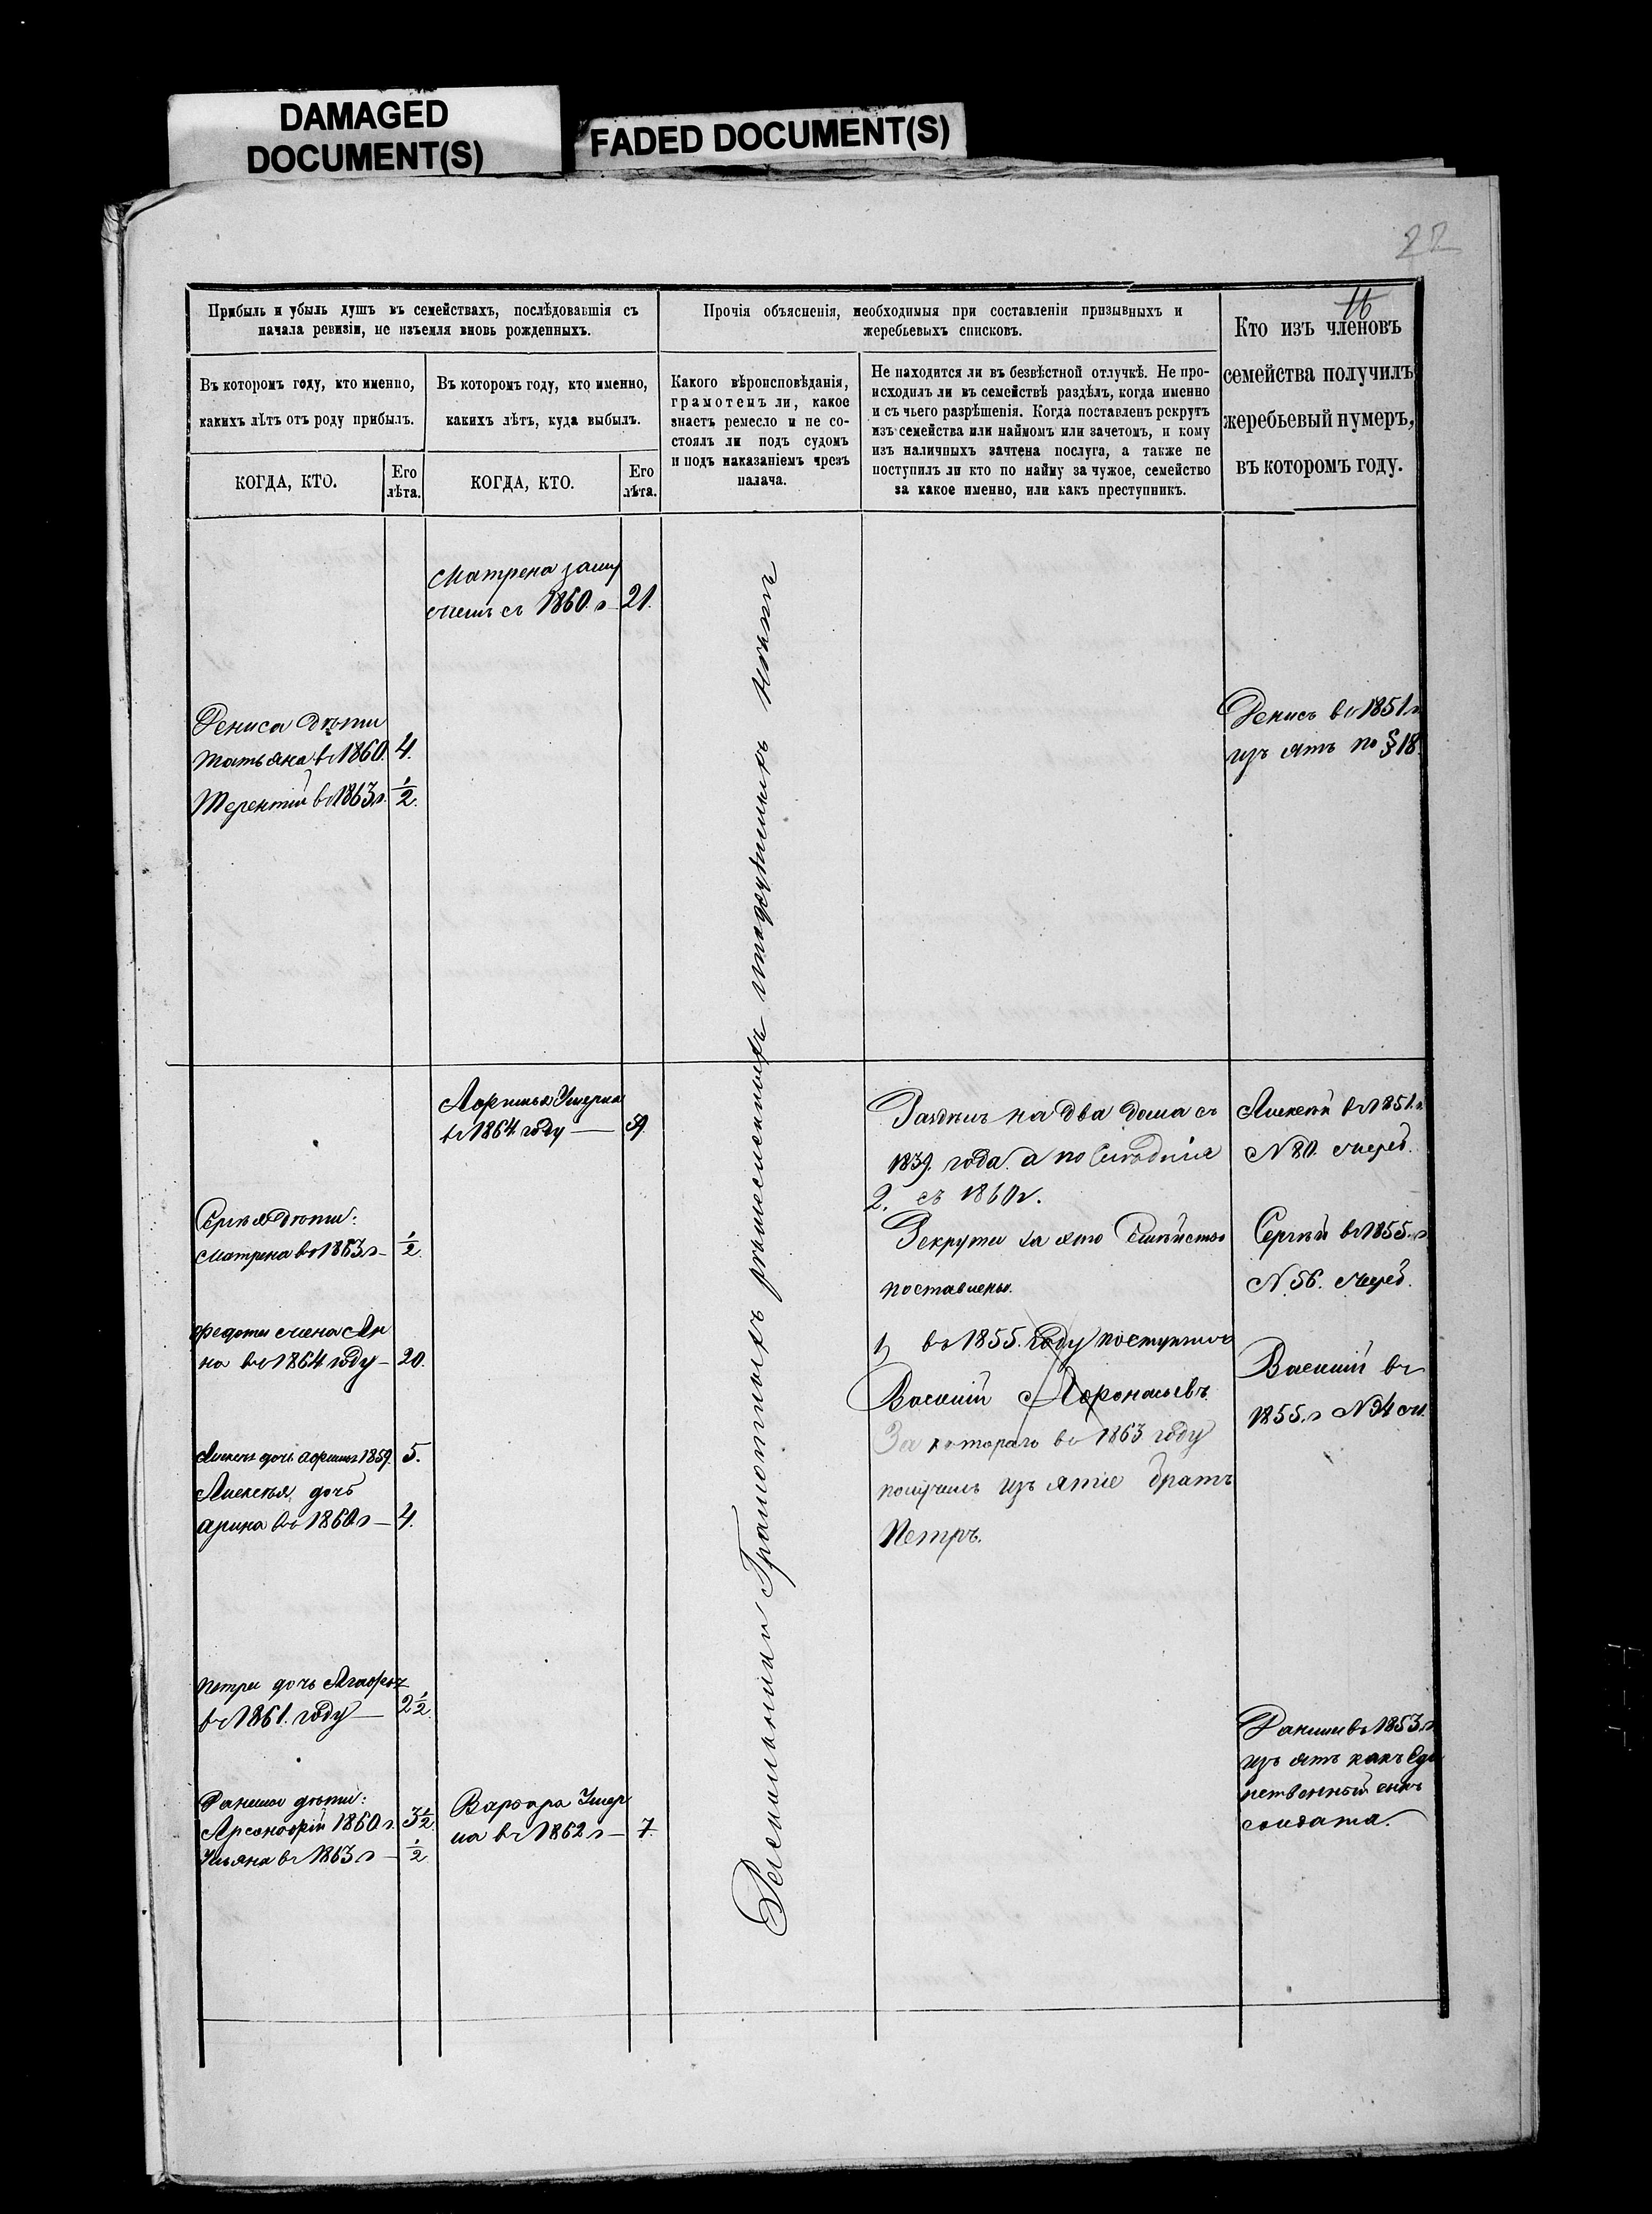 DAMAGED
DOCUMENT(S)
FADED DOCUMENT(S)
22
16
Прибыль и убыль душъ въ семействахъ, послѣдовавшія съ
начала ревизіи, не изъемля вновь рожденныхъ.
Прочія объясненія, необходимыя при составленіи призывныхъ и
жеребьевыхъ списковъ.
Кто изъ членовъ
семейства получилъ
жеребьевый нумеръ,
въ которомъ году.
Въ которомъ году, кто именно,
какихъ лѣтъ отъ роду прибылъ.
Въ которомъ году, кто именно,
какихъ лѣтъ, куда выбылъ.
Какого вѣроисповѣданія,
грамотенъ ли, какое
знаетъ ремесло и не со-
стоялъ ли подъ судомъ
и подъ наказаніемъ чрезъ
палача.
Не находится ли въ безвѣстной отлучкѣ. Не про-
исходилъ ли въ семействѣ раздѣлъ, когда именно
и съ чьего разрѣшенія. Когда поставленъ рекрутъ
изъ семейства или наймомъ или зачетомъ, и кому
изъ наличныхъ зачтена послуга, а также не
поступилъ ли кто по найму за чужое, семейство
за какое именно, или какъ преступникъ.
КОГДА, КТО.
Его
лѣта.
КОГДА, КТО.
Его
лѣта.
Матрена заму
съ 1860. г 21.
Дениса дѣти
Татьяна в 1860. 4.
Терентій в 1863 г. ½.
Денисъ в 1851 г
изъ ятъ по § 18.
Умерла
въ 1864 году
Раздѣлъ на два дома съ
1839. года. а по
2. съ 1860 г.
Рекруты за это Семѣйство
поставлены.
1, въ 1855. году поступилъ
Василій Афонасьевъ
За котораго въ 1863 году
получилъ изъ ятіе братъ
Петръ.
Алексѣй въ 1851. г
N 80. очеред.
Сергѣй въ 1855. г
N 56. очеред.
Василій въ
1855. г N 94
Сергѣя дѣти:
Матрена въ 1863 г ½.
жена Ан
на въ 1864 году 20.
дочь 1859. 5.
Алексѣя дочь
арина въ 1860 г 4.
Петра дочь Агафья
въ 1861. году 2½.
дѣти:
1860 г. 3½.
Ульяна въ 1863 г ½
Варвара Умер
ла въ 1862 г 7.
въ 1853. г
изъ ятъ какъ Еди
нственный сынъ
солдата.
грамотныхъ ремесленныхъ подсудимыхъ нѣтъ